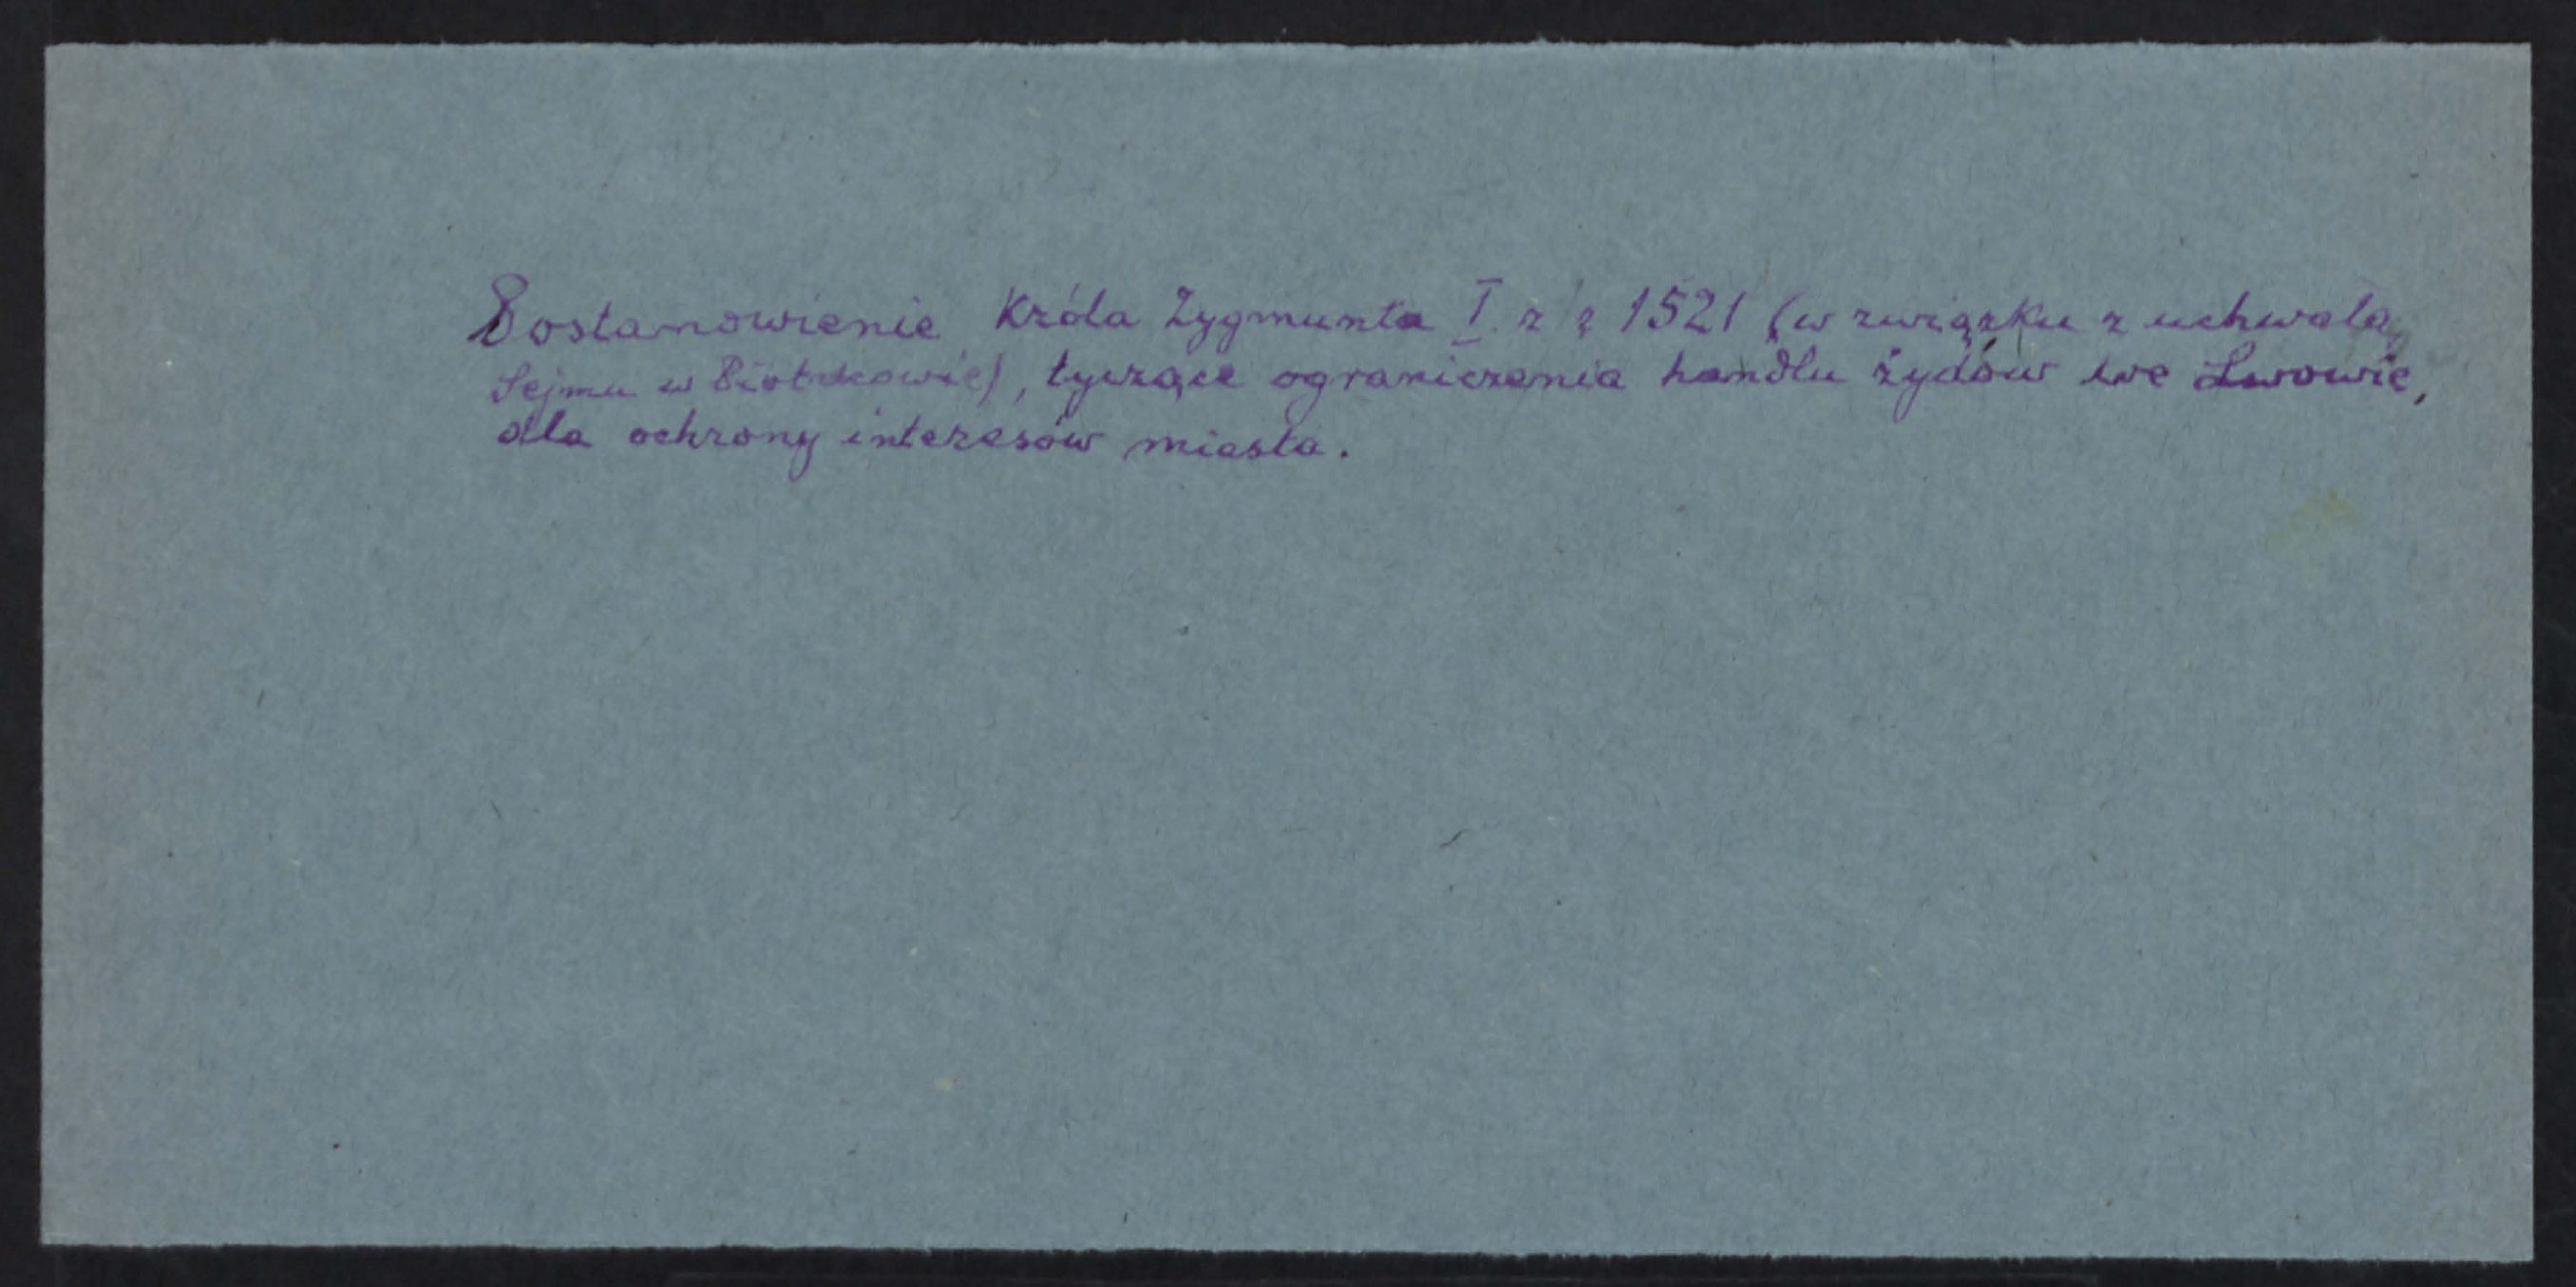 Postanowienie Króla Zygmunta I. z r 1521 (w związku z uchwałą
Sejmu w Piotrkowie), tyczące ograniczenia handlu żydów we Lwowie,
dla ochrony interesów miasta.